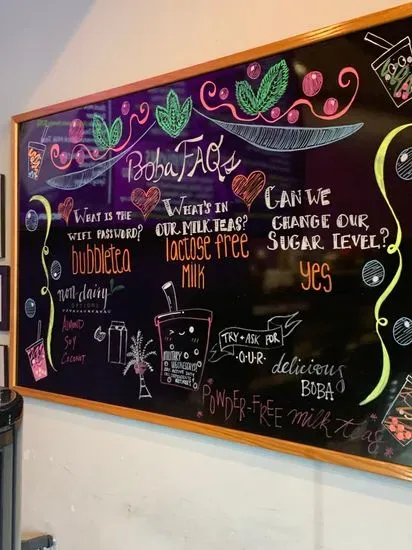 Boba FAQs
WHAT IS THE
WIFI PASSWORD?
bubbletea
WHAT'S IN
OUR MILK TEAS?
lactose free
milk
CAN WE
CHANGE OUR
SUGAR LEVEL?
yes
non-dairy
OPTIONS
ALMOND
SOY
COCONUT
MILITARY
TRY + ASK FOR
·O·U·R·
delicious
BOBA
POWDER-FREE milk tea